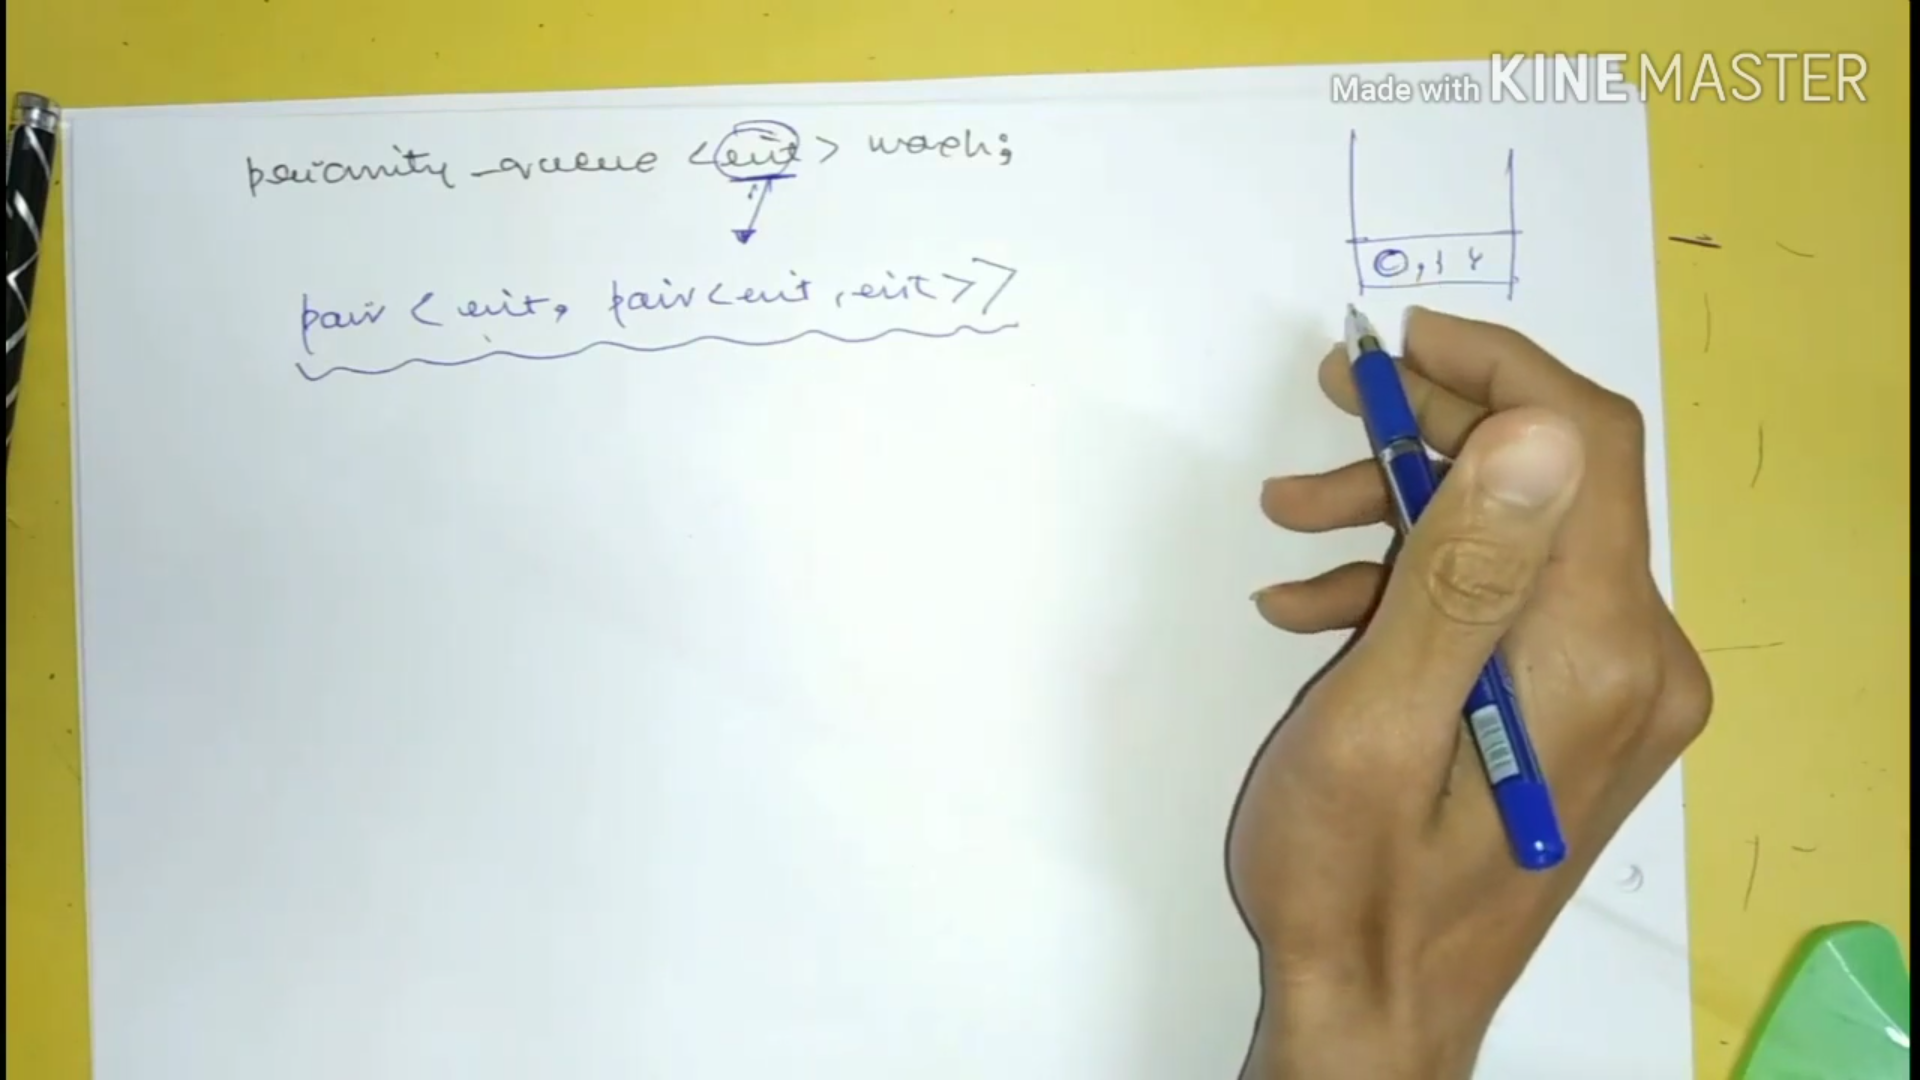 Made with KINEMASTER
priority_queue <int> wach;
pair < int, pair<int, int>>
0, { }